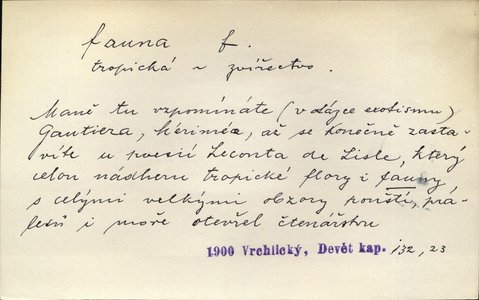 fauna f.
tropická ~ zvířectvo.
Maně tu vzpomínáte (v lásce exotismu)
Gautiera, Mériméa, až se konečně zasta-
víte u poesií Leconta de Lisle, který
celou nádheru tropické flory i fauny
s celými velkými obzory pouští, pra-
lesů i moře otevřel čtenářstvu
1900 Vrchlický, Devět kap. 132, 23